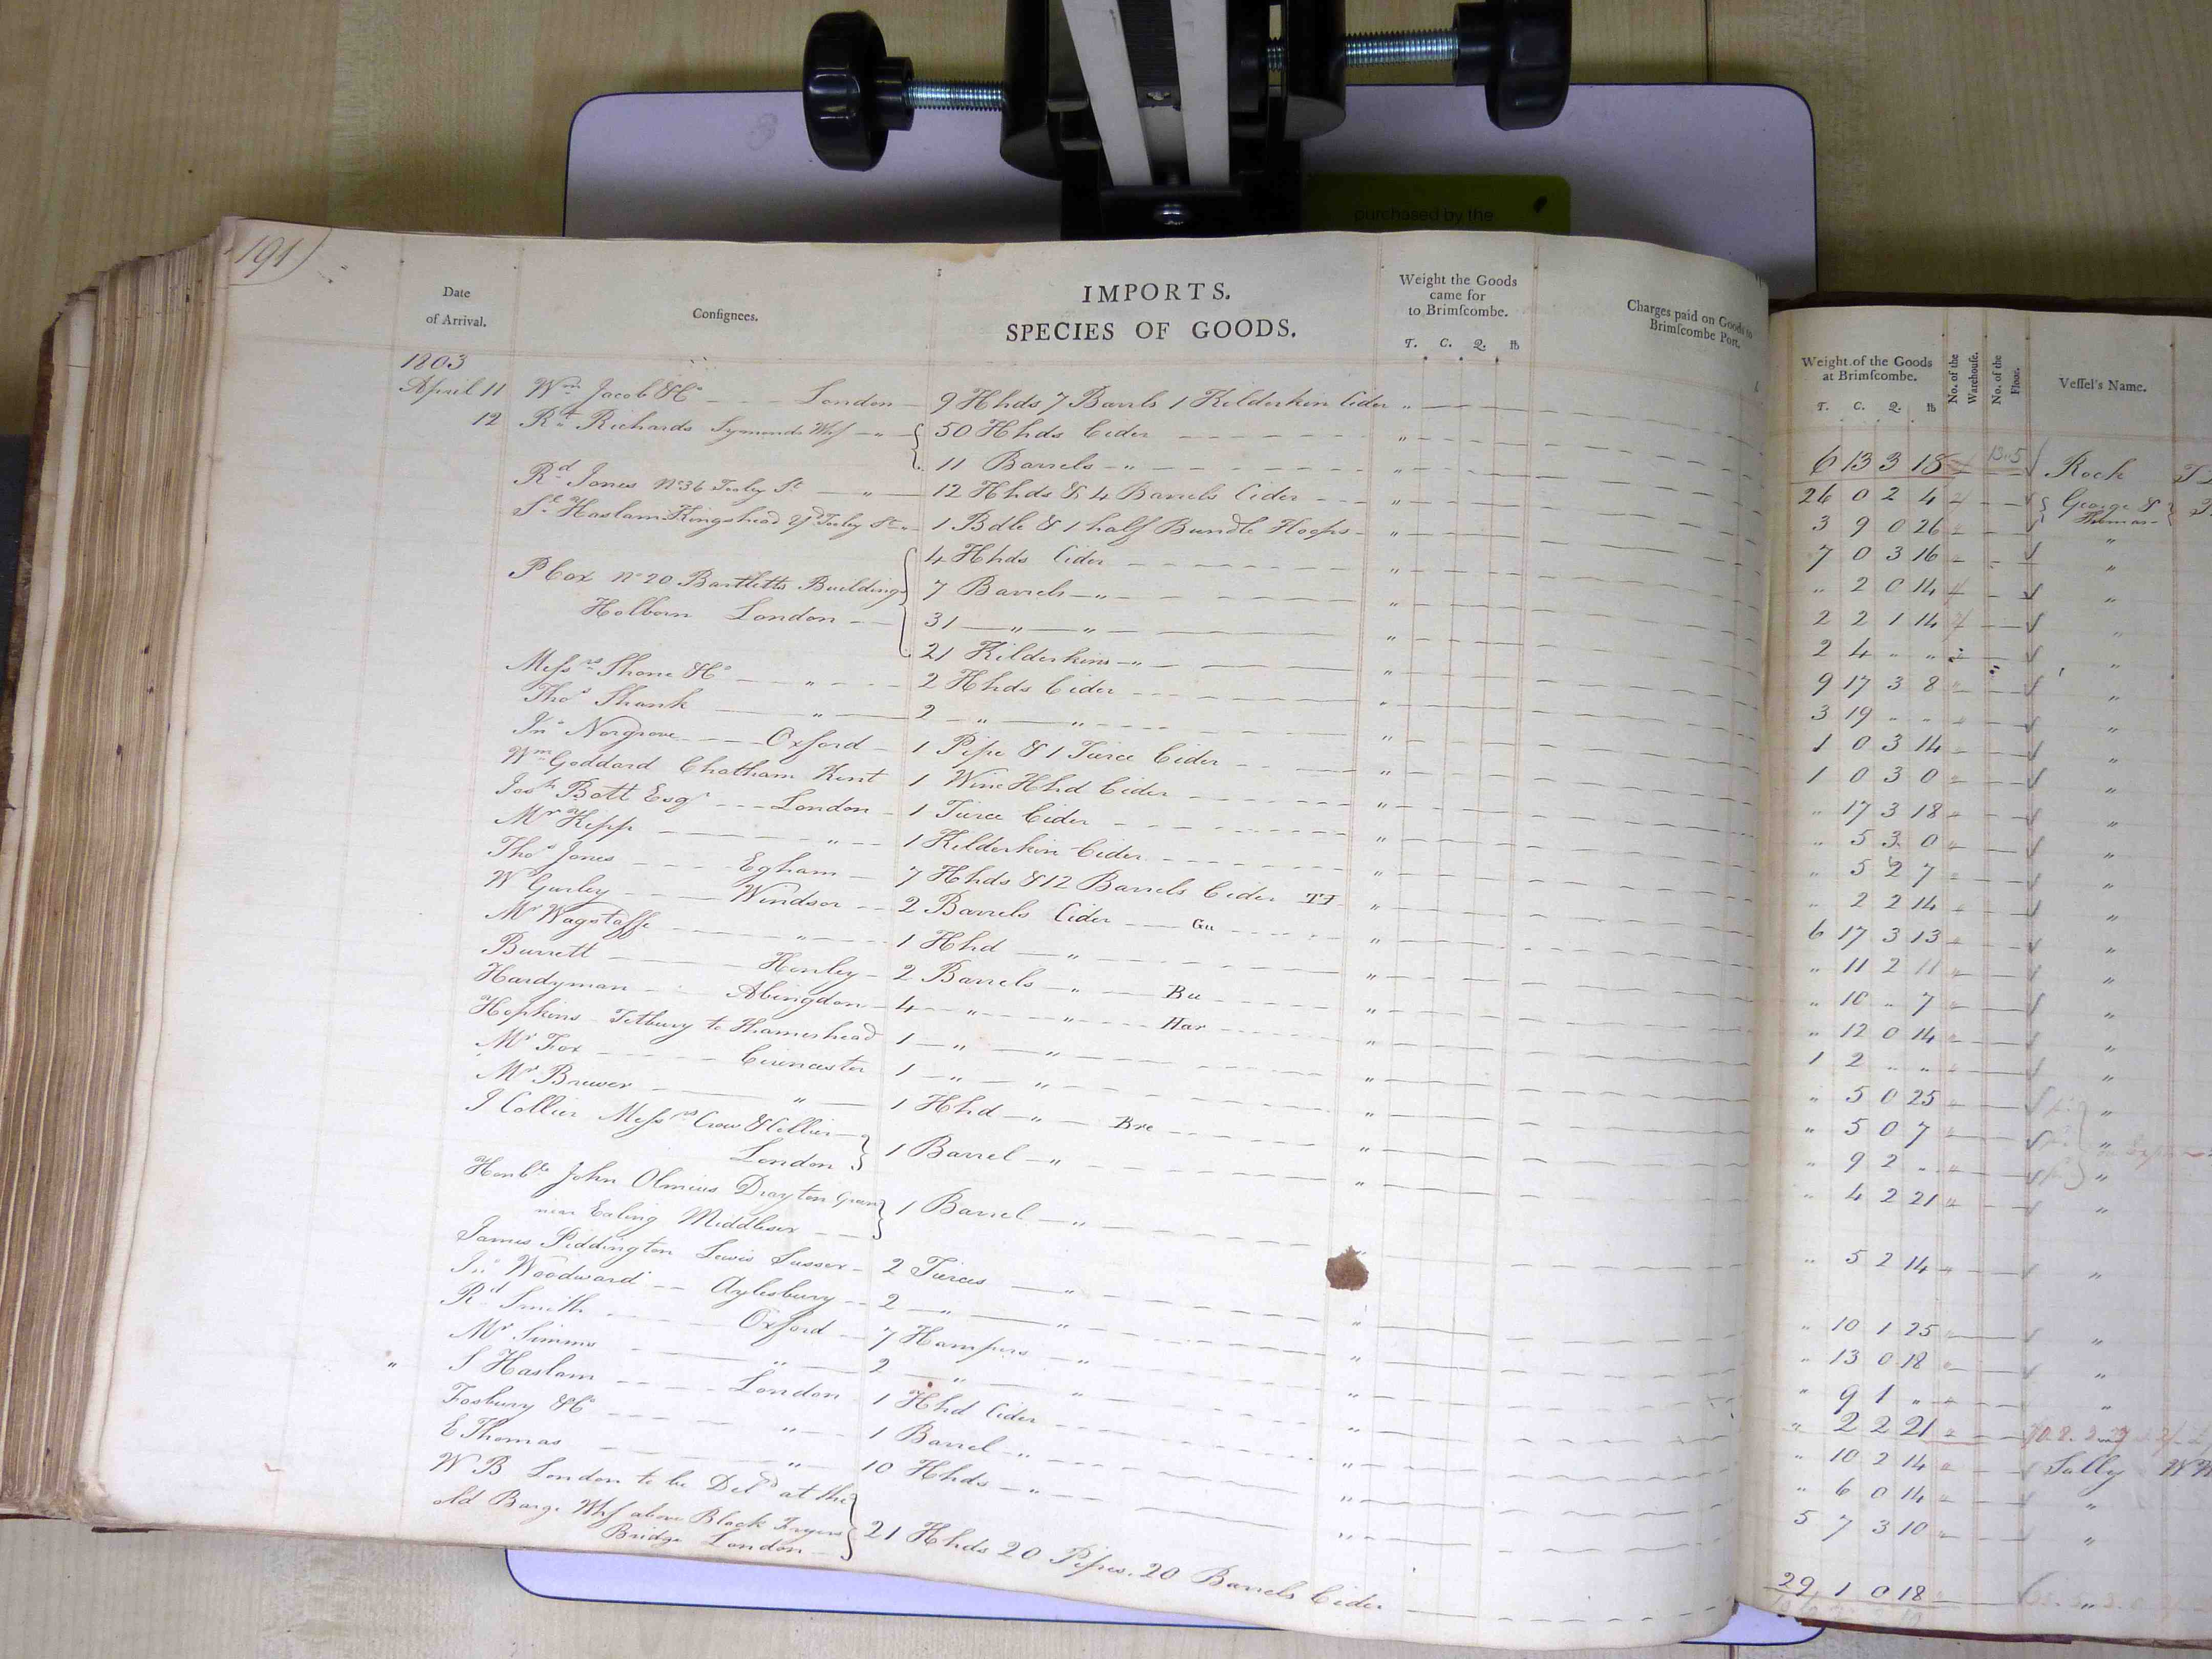 purchased by the
191)
Date
of Arrival.
Consignees.
IMPORTS.
SPECIES OF GOODS.
Weight the Goods
came for
to Brimſcombe.
T. C. Q. lb
Charges paid on Goods to
Brimſcombe Port.
Weight of the Goods
at Brimſcombe.
T. C. Q. lb
No. of the
Warehouſe.
No. of the
Floor.
Veſſel's Name.
1803
April 11 Wm Jacob & Co London 9 Hhds 7 Barrls 1 Kilderkin Cider " 6 13 3 18 Rock
12 Rd Richards Symonds Whf " 50 Hhds Cider " 26 0 2 4 George &
Thomas
11 Barrels " " 3 9 0 26 "
Rd Jones No 36 Tooley St " 12 Hhds & 4 Barrels Cider " 7 0 3 16 "
Sl Haslam Kingshead Yd Tooley St " 1 Bdle & 1 half Bundle Hoops " " 2 0 14 "
4 Hhds Cider " 2 2 1 14 "
P Cox No 20 Bartletts Buildings 7 Barrels " " 2 4 " " "
Holborn London 31 " " " 9 17 3 8 "
21 Kilderkins " " 3 19 " " "
Messrs Shone & Co " 2 Hhds Cider " 1 0 3 14 "
Thos Shank " 2 " " " 1 0 3 0 "
Jno Norgrove Oxford 1 Pipe & 1 Tierce Cider " " 17 3 18 "
Wm Goddard Chatham Kent 1 Wine Hhd Cider " " 5 3 0 "
Josh Bott Esqr London 1 Tierce Cider " " 5 2 7 "
Mr Kipp " 1 Kilderkin Cider " " 2 2 14 "
Thos Jones Egham 7 Hhds & 12 Barrels Cider TJ " 6 17 3 13 "
W Gurley Windsor 2 Barrels Cider Gu " " 11 2 11 "
Mr Wagstaffe " 1 Hhd " " " 10 " 7 "
Burrett Henley 2 Barrels " Bu " " 12 0 14 "
Hardyman Abingdon 4 " " Har " 1 2 " " "
Hopkins Tetbury to Thameshead 1 " " " " 5 0 25 "
Mr Fox Cirencester 1 " " " " 5 0 7 "
Mr Brewer " 1 Hhd " Bre " " 9 2 " "
J Collier Messrs Crow & Collier
London 1 Barrel " " " 4 2 21 "
Honble John Olmius Drayton Green
near Ealing Middlesex 1 Barrel " " " 5 2 14 "
James Piddington Lewis Sussex 2 Tierces " " " 10 1 25 "
Jno Woodward Aylesbury 2 " " " " 13 0 18 "
Rd Smith Oxford 7 Hampers " " " 9 1 " "
Mr Simms " 2 " " " " 2 2 21
" S Haslam London 1 Hhd Cider " " 10 2 14 Sally
Fosbury & Co " 1 Barrel " " " 6 0 14 "
E Thomas " 10 Hhds " " 5 7 3 10 "
W B London to be Deld at the
old Barge Whf above Black Fryers 21 Hhds 20 Pipes. 20 Barrels Cider 29 1 0 18
Bridge London